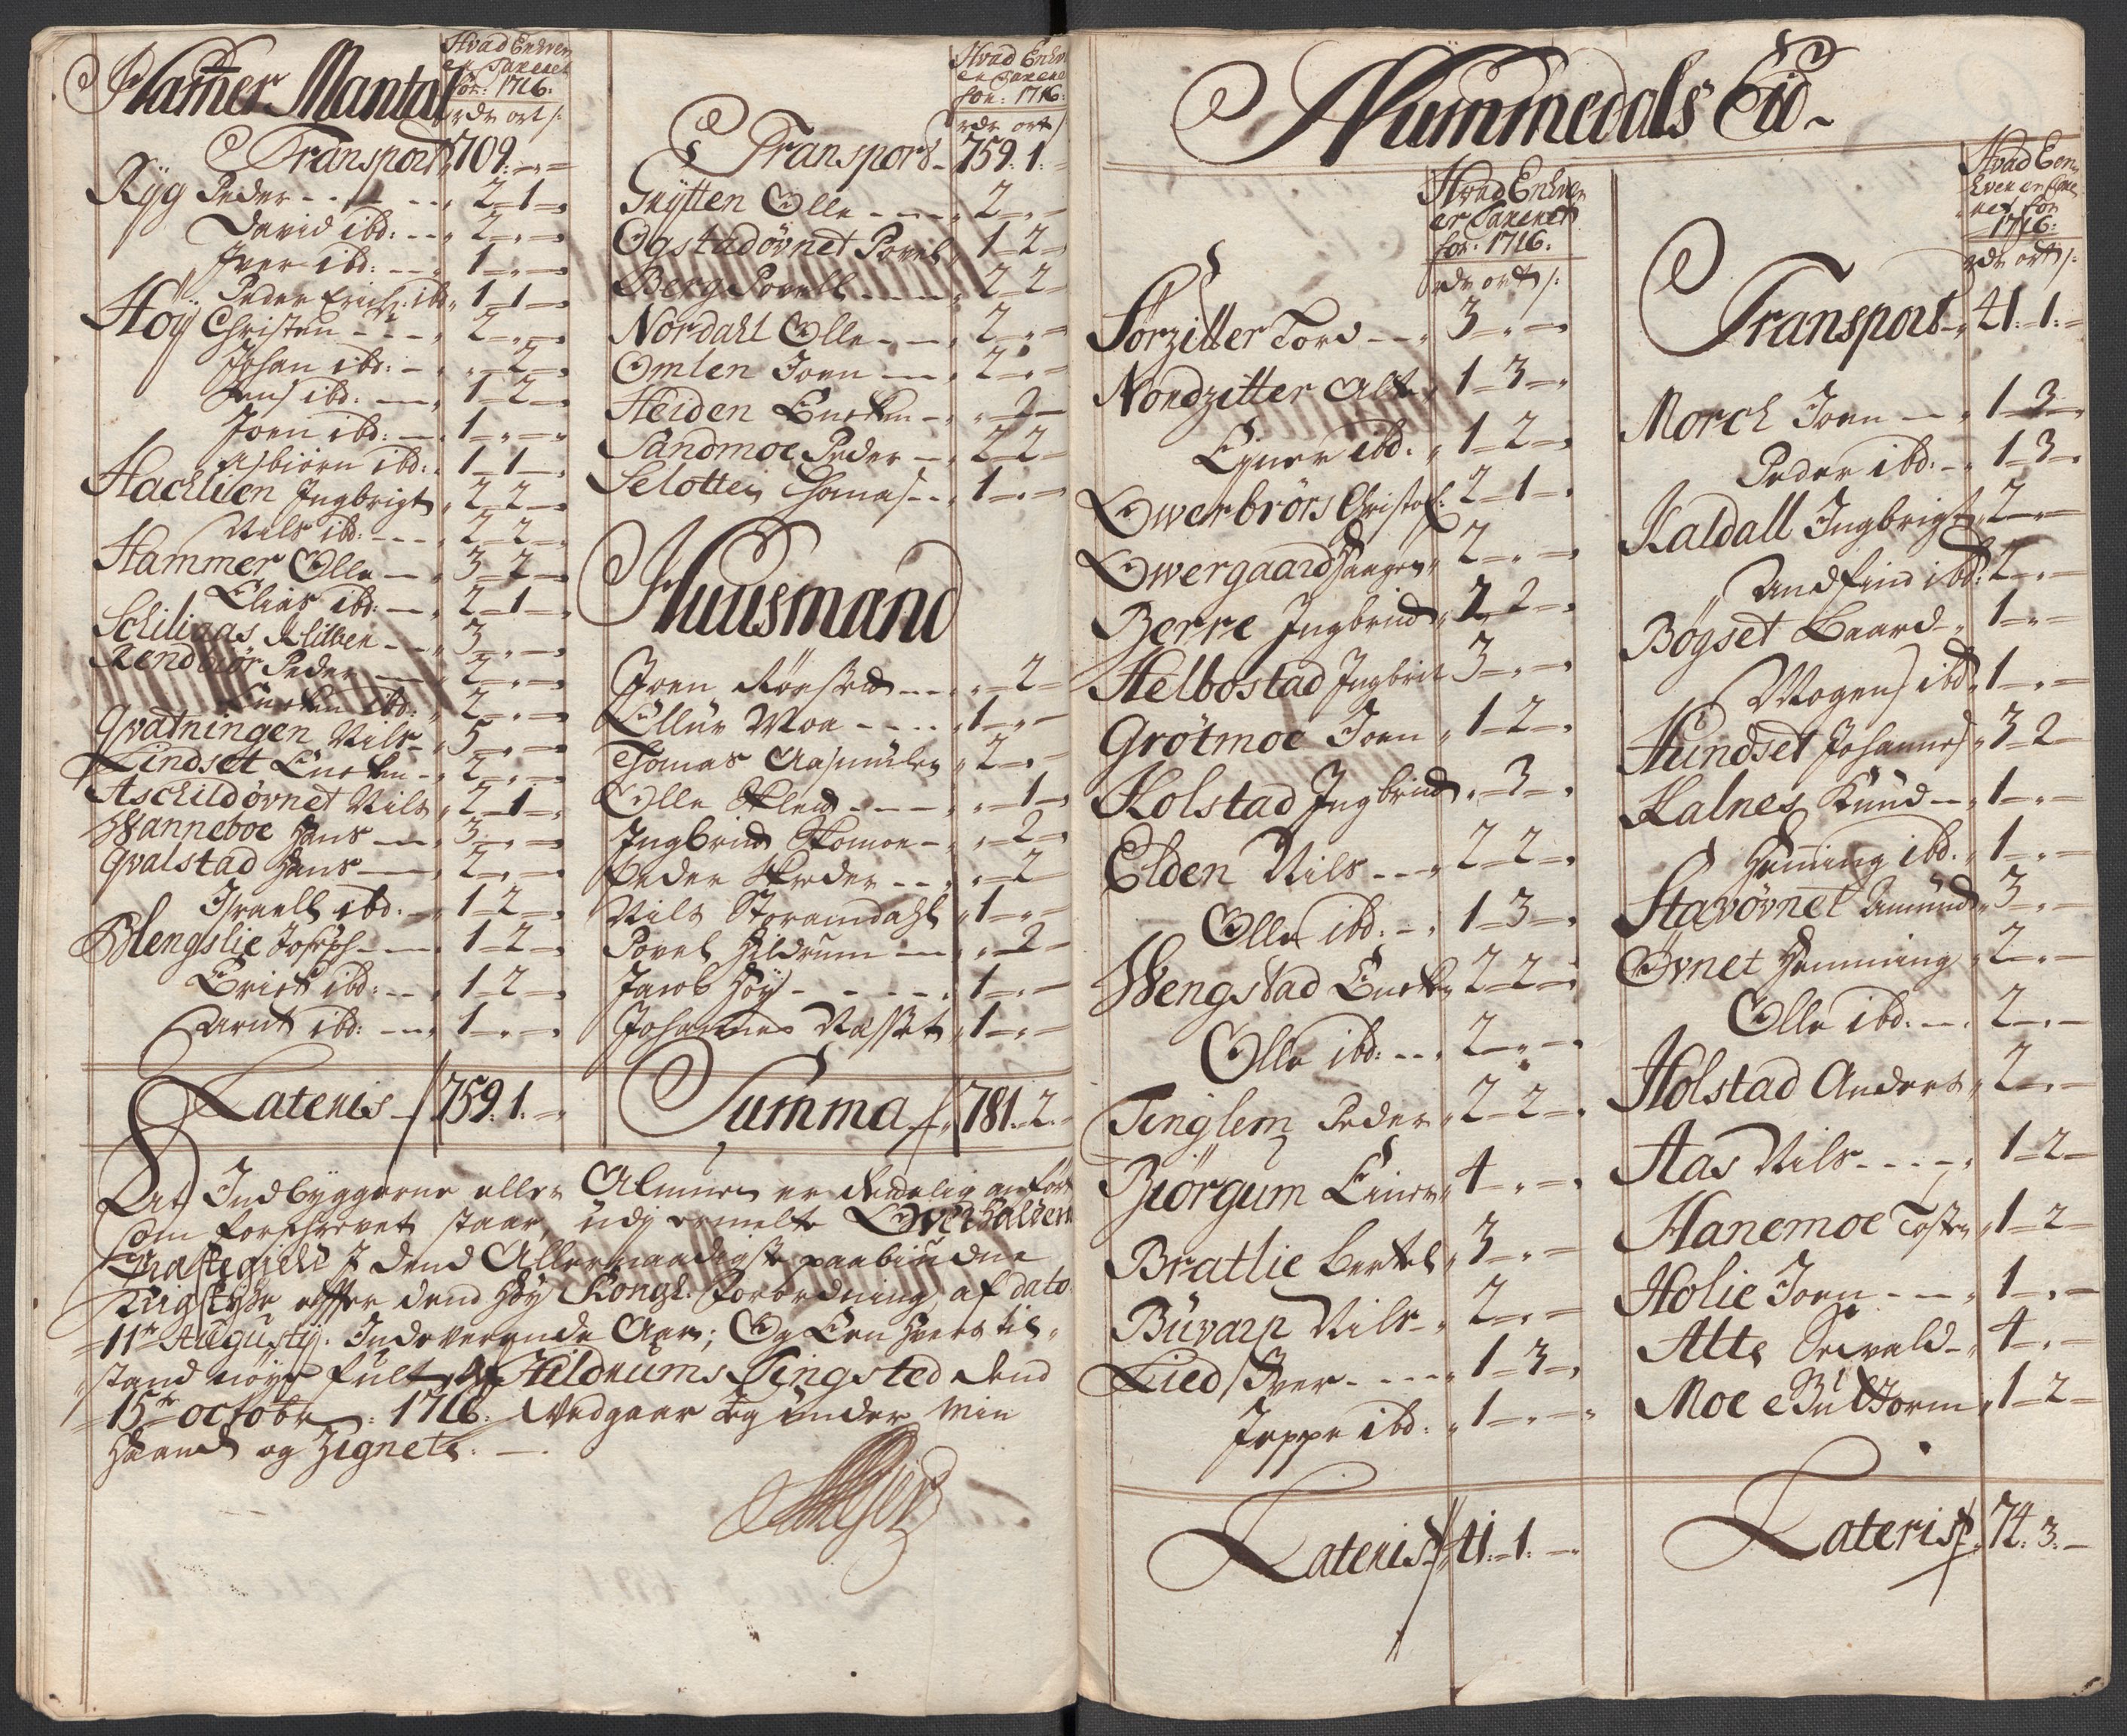 Hamer Mantal
Hvad Enhver
er Taxeret
for: 1716:
rdr ort s:
Transport 709: - -
Ryg Peder - - - 2 - 1 -
David ibd: - - 2 - -
Iver ibd: - - 1 - -
Peder Erichs: ibd 1 - 1 -
Høy Christen - - 2 - -
Johan ibd: - - 2 -
Jens ibd: - 1 - 2 -
Joen ibd: - 1 - -
Asbiørn ibd: 1 - 1 -
Hachlien Ingbrigt 2 - 2 -
Nils ibd: - - 2 - 2 -
Hammer Olle - 3 - 2 -
Elias ibd: - 2 - 1 -
Schilinaas - - 3 - -
Peder - 2 - -
ibd: 2 - -
Qvatningen Nils - 5 - -
Lindset - 2 - -
Aschildøvnet Nils 2 - 1 -
Wanneboe Hans - 3 - -
Qvalstad Hans - 2 - -
Israell ibd: - 1 - 2 -
Blengslie Joseph - 1 - 2 -
Erich ibd: - - 1 - 2 -
Arnt ibd: - - 1 - -
Lateris 759: 1: -
Hvad Enhver
er Taxeret
for: 1716:
rdr ort s
Transport - 759: 1: -
Grytten Olle - - - 2 - -
Ogstadøvnet Povel 1 - 2 -
Berg Povell - - - 2 - 2 -
Nordahl Olle - - 2 - -
Omlen Joen - - 2 - -
Heiden - - 2 -
Sandmoe Peder - 2 - 2 -
Selotten Thomas - - 1 - -
Huusmænd
Joen - - - 2 -
Ellür Moe - - - 1 - -
Thomas Aasmülen 2 - -
Olle - - - 1 -
Ingbrict - - 2 -
Peder - - 2 -
Nils Storemdahl 1 - -
Povel Hildrum - - 2 -
Jacob Høy - - - 1 - -
Johannes 1 - -
Summa 781: 2: -
At Indbyggerne eller Almuen er Redelig anført
som forschrevet staar, udj ermelte Owerhalden
Præstegield I dend Allernaadigste paabudne
effter dend Høy Kongl: Forordning af dato
11te Augustij. Indeverende Aar; Og Een hvers til-
stand Hildrums Tingsted dend
15de octobr: 1716: Vedgaar Jeg under Min
Haand og Zignete. -
Nummedals Eid -
Hvad Enhver
er Taxeret
for: 1716:
rdr ort s:
Sørzitter Tord - - 3 - -
Nordzitter 1 - 3 -
Eyner ibd: 1 - 2 -
Owerbrørs Christof: 2 - 1 -
Owergaard Haagen 2 - -
Berre Ingbrict 2 - 2 -
Helbostad Ingbrict 3 - -
Grøtmoe Joen 1 - 2 -
Holstad Ingbrict - 3 -
Elden Nils - - 2 - 2 -
Olle ibd: - 1 - 3 -
Wengstad 2 - 2 -
Olle ibd: - - 2 - -
Tinglem Peder 2 - 2 -
Biørgum Einer 4 - -
Bratlie Bertel 3 - -
Büvarp Nils - 2 - -
Lied Iver - - - 1 - 3 -
Jeppe ibd: 1 - -
Lateris 41: 1: -
Hvad Een
hver er Taxe
ret for
1716:
rdr ort s:
Transport - 41: 1: -
Morch Joen - - 1 - 3 -
Peder ibd: - 1 - 3 -
Kaldall Ingbrigt 2 - -
Andfind ibd: 2 - -
Bøgset Baard - 1 - -
Mogens ibd 1 - -
Hundset Johannes 3 - 2 -
Kalnes Knud - 1 - -
Heming ibd: 1 - -
Stavøvnet Amund 3 - -
Øvnet Hemming 2 - -
Olle ibd: - - 2 - -
Holstad Anders 2 - -
Aas Nils - - - 1 - 2 -
Hanemoe Tosten 1 - 2 -
Holie Joen - - - 1 - -
Alte Sivald - 4 - -
Moe 1 - 2 -
Lateris 74: 3: -